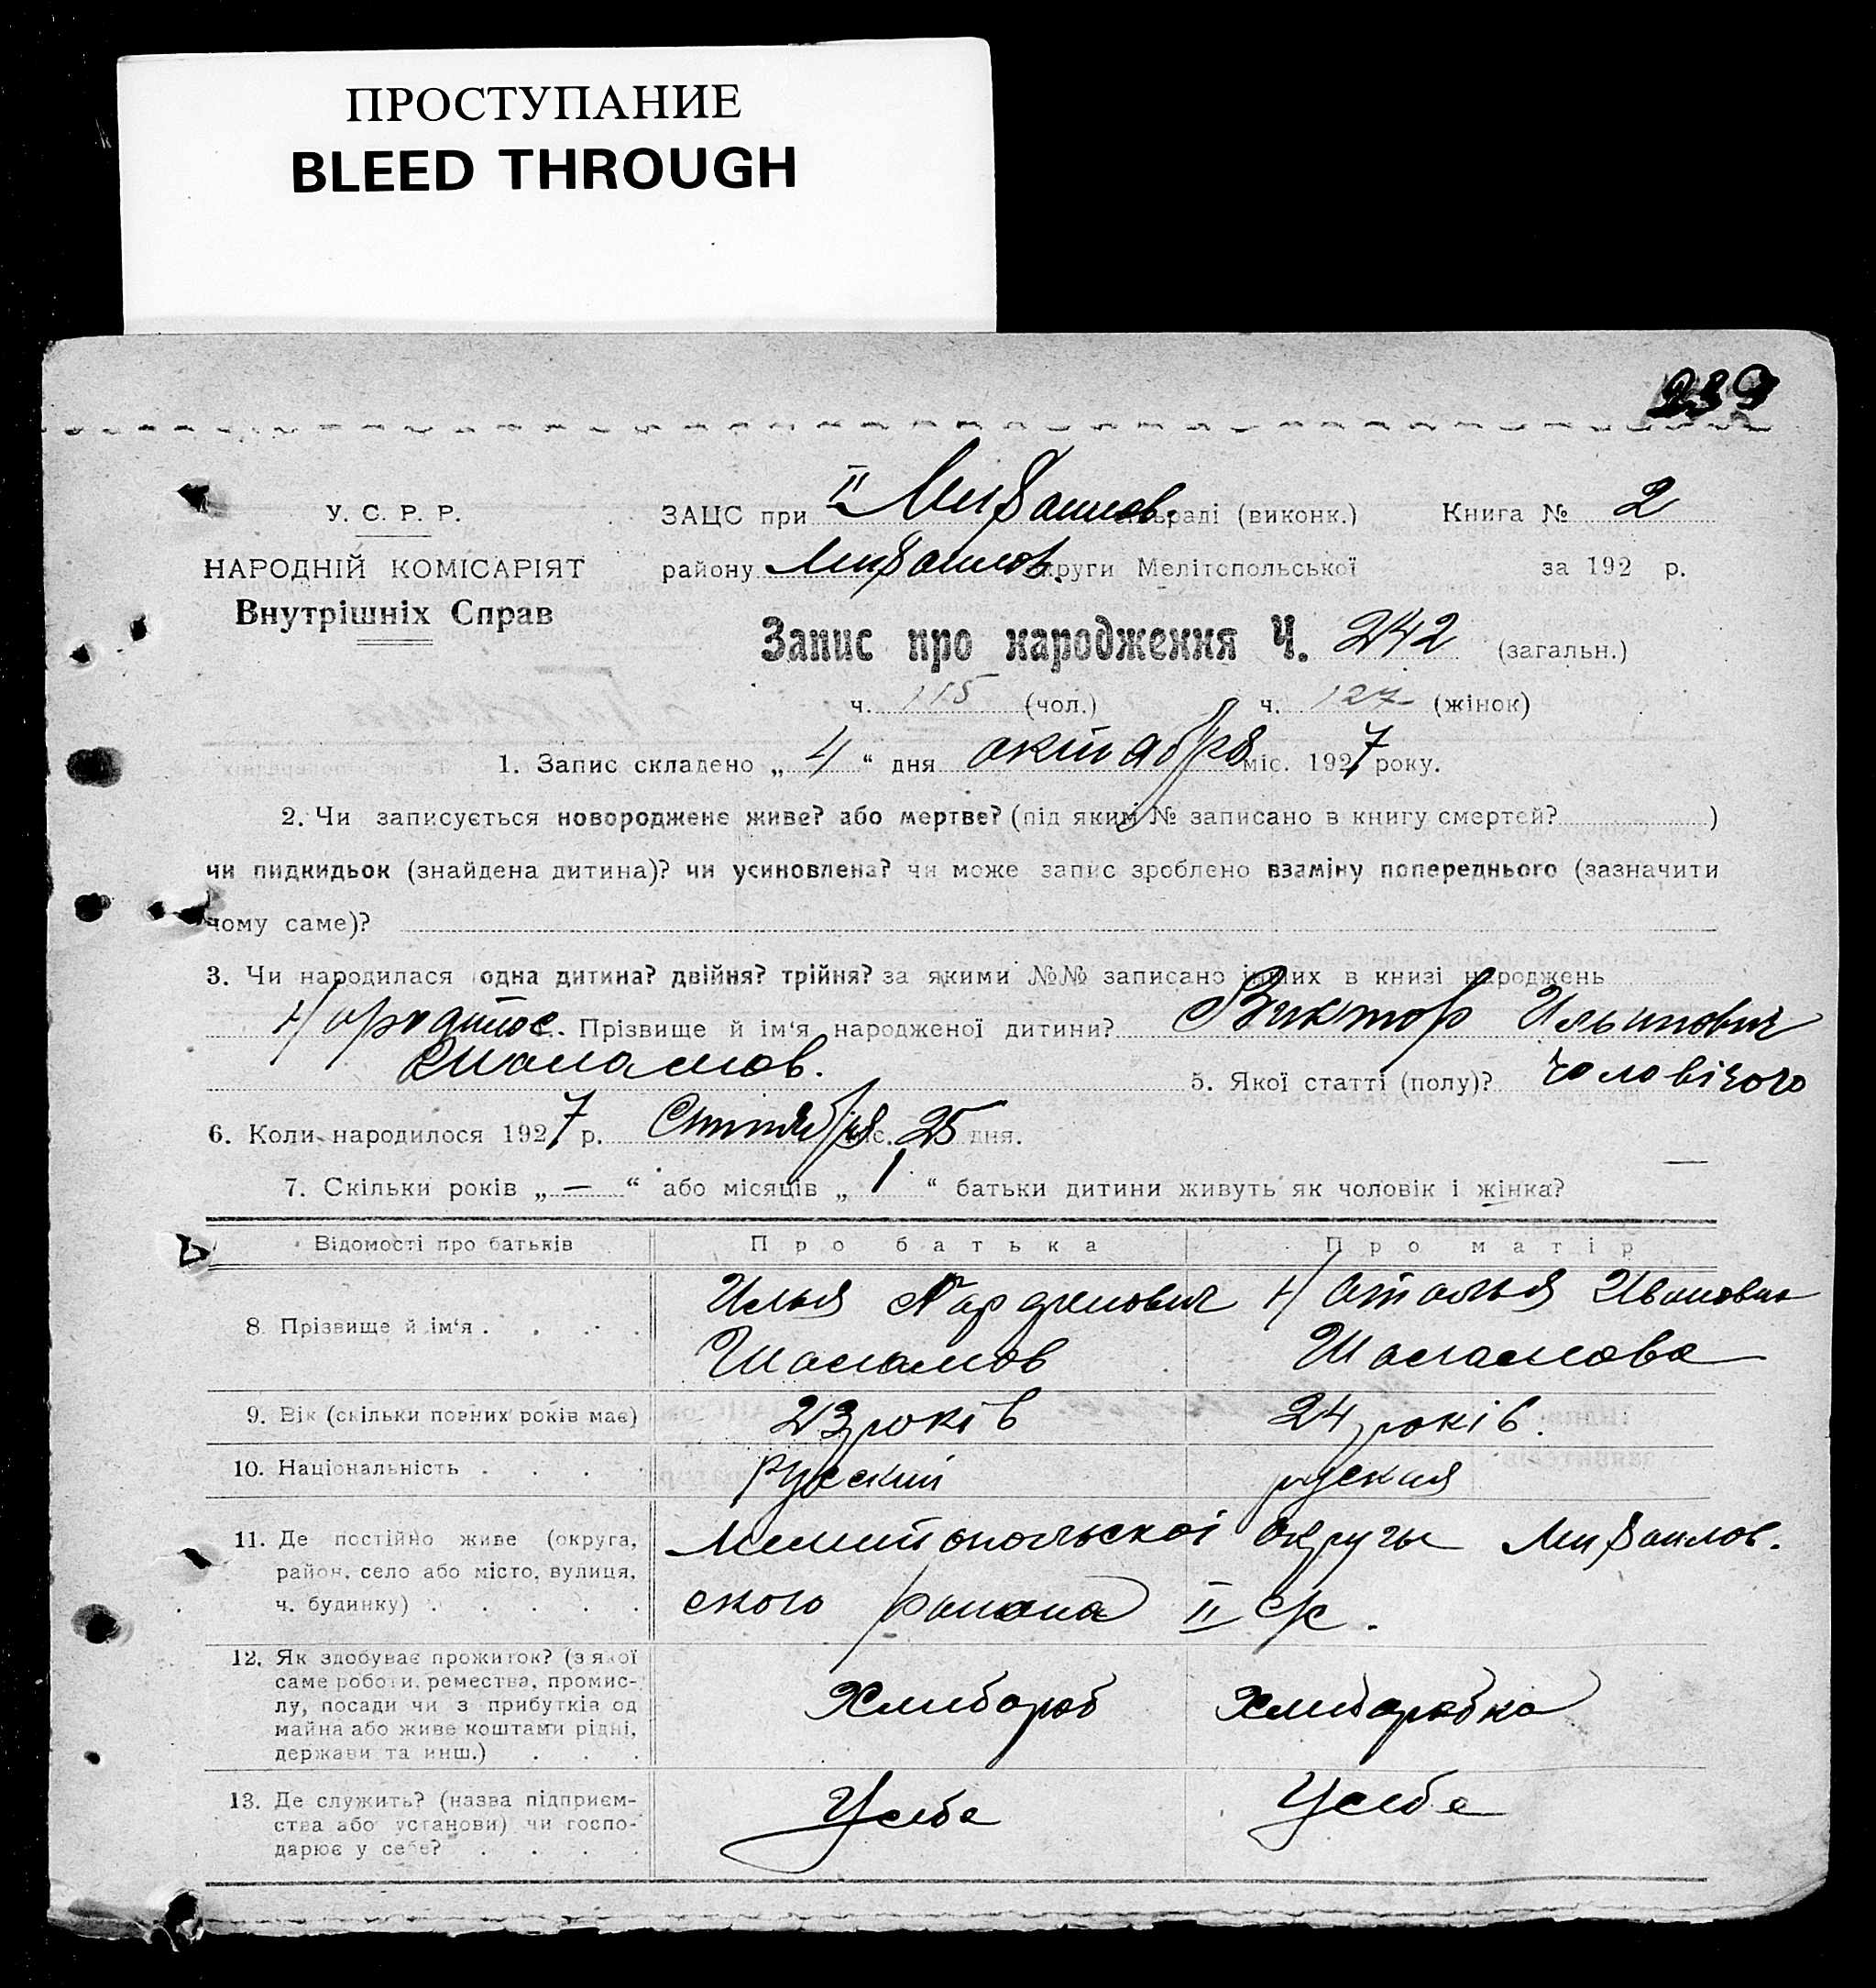 ПРОСТУПАНИЕ
BLEED THROUGH
239
У. С. Р. Р.
НАРОДНІЙ КОМІСАРІЯТ
Внутрішніх Справ
ЗАЦС при II Михайлов. сільраді (виконк.) Книга № 2
району Михайлов. округи Мелітопольської за 192 р.
Запис про народження Ч. 242 (загальн.)
ч. 115 (чол.) ч. 127 (жінок)
1. Запис складено „ 4 “ дня октября міс. 1927 року.
2. Чи записується новороджене живе? або мертве? (під яким № записано в книгу смертей? )
чи пидкидьок (знайдена дитина)? чи усиновлена? чи може запис зроблено взаміну попереднього (зазначити
чому саме)?
3. Чи народилася одна дитина? двійня? трійня? за якими №№ записано інших в книзі народжень
Прізвище й ім‘я народженої дитини? Виктор Ильинович
Шаламов. 5. Якої статті (полу)? чоловічого
6. Коли народилося 1927 р. Сентября міс. 25 дня.
7. Скільки років „ — “ або місяців „ 1 “ батьки дитини живуть як чоловік і жінка?
Відомості про батьків Про батька Про матір
8. Прізвище й ім‘я . . . . . Илья Шаламов Наталья Ивановна Шаламова
9. Вік (скільки повних років має) 23 років 24 років.
10. Національність . . . . Русский руская
11. Де постійно живе (округа,
район, село або місто, вулиця,
ч. будинку) . . . . .
Мелитопольскоі округы Михайлов.
ского района II с/с.
12. Як здобуває прожиток? (з якої
саме роботи, ремества, промис-
лу, посади чи з прибутків од
майна або живе коштами рідні,
держави та инш.) . . .
Хлибороб Хлиборобка
13. Де служить? (назва підприєм-
ства або установи) чи госпо-
дарює у себе? . . . .
У себе У себе